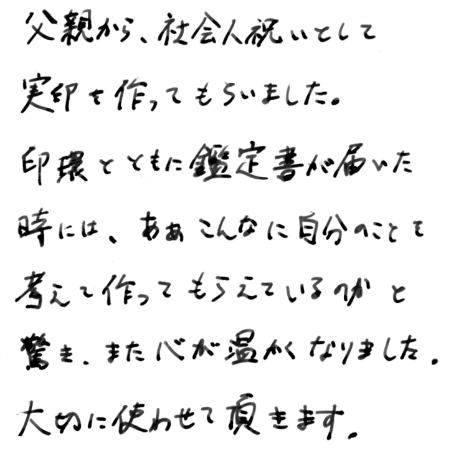 父親から、社会人祝いとして
実印を作ってもらいました。
印環とともに鑑定書が届いた
時には、ああこんなに自分のことを
考えて作ってもらえているのかと
驚き、また心が温かくなりました。
大切に使わせて頂きます。